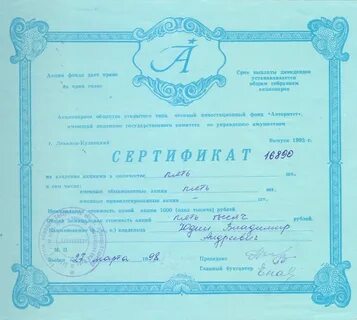 А
Акция фонда дает право
на один голос
Срок выплаты дивидендов
устанавливается
общим собранием
акционеров
Акционерное общество открытого типа, чековый инвестиционный фонд «Авторитет»,
имеющий лицензию государственного комитета по управлению имуществом
г. Ленинск-Кузнецкий
Выпуск 1993 г.
СЕРТИФИКАТ 16890
на владение акциями в количестве пять шт.
в том числе:
именные обыкновенные акции пять шт.
именные привилегированные акции шт.
Номинальная стоимость одной акции 1000 (одна тысяча) рублей
стоимость акций пять тысяч рублей
владельца Юдин Владимир
Андреевич
М. П.
Выдан 27 марта 1998
Президент
Главный бухгалтер